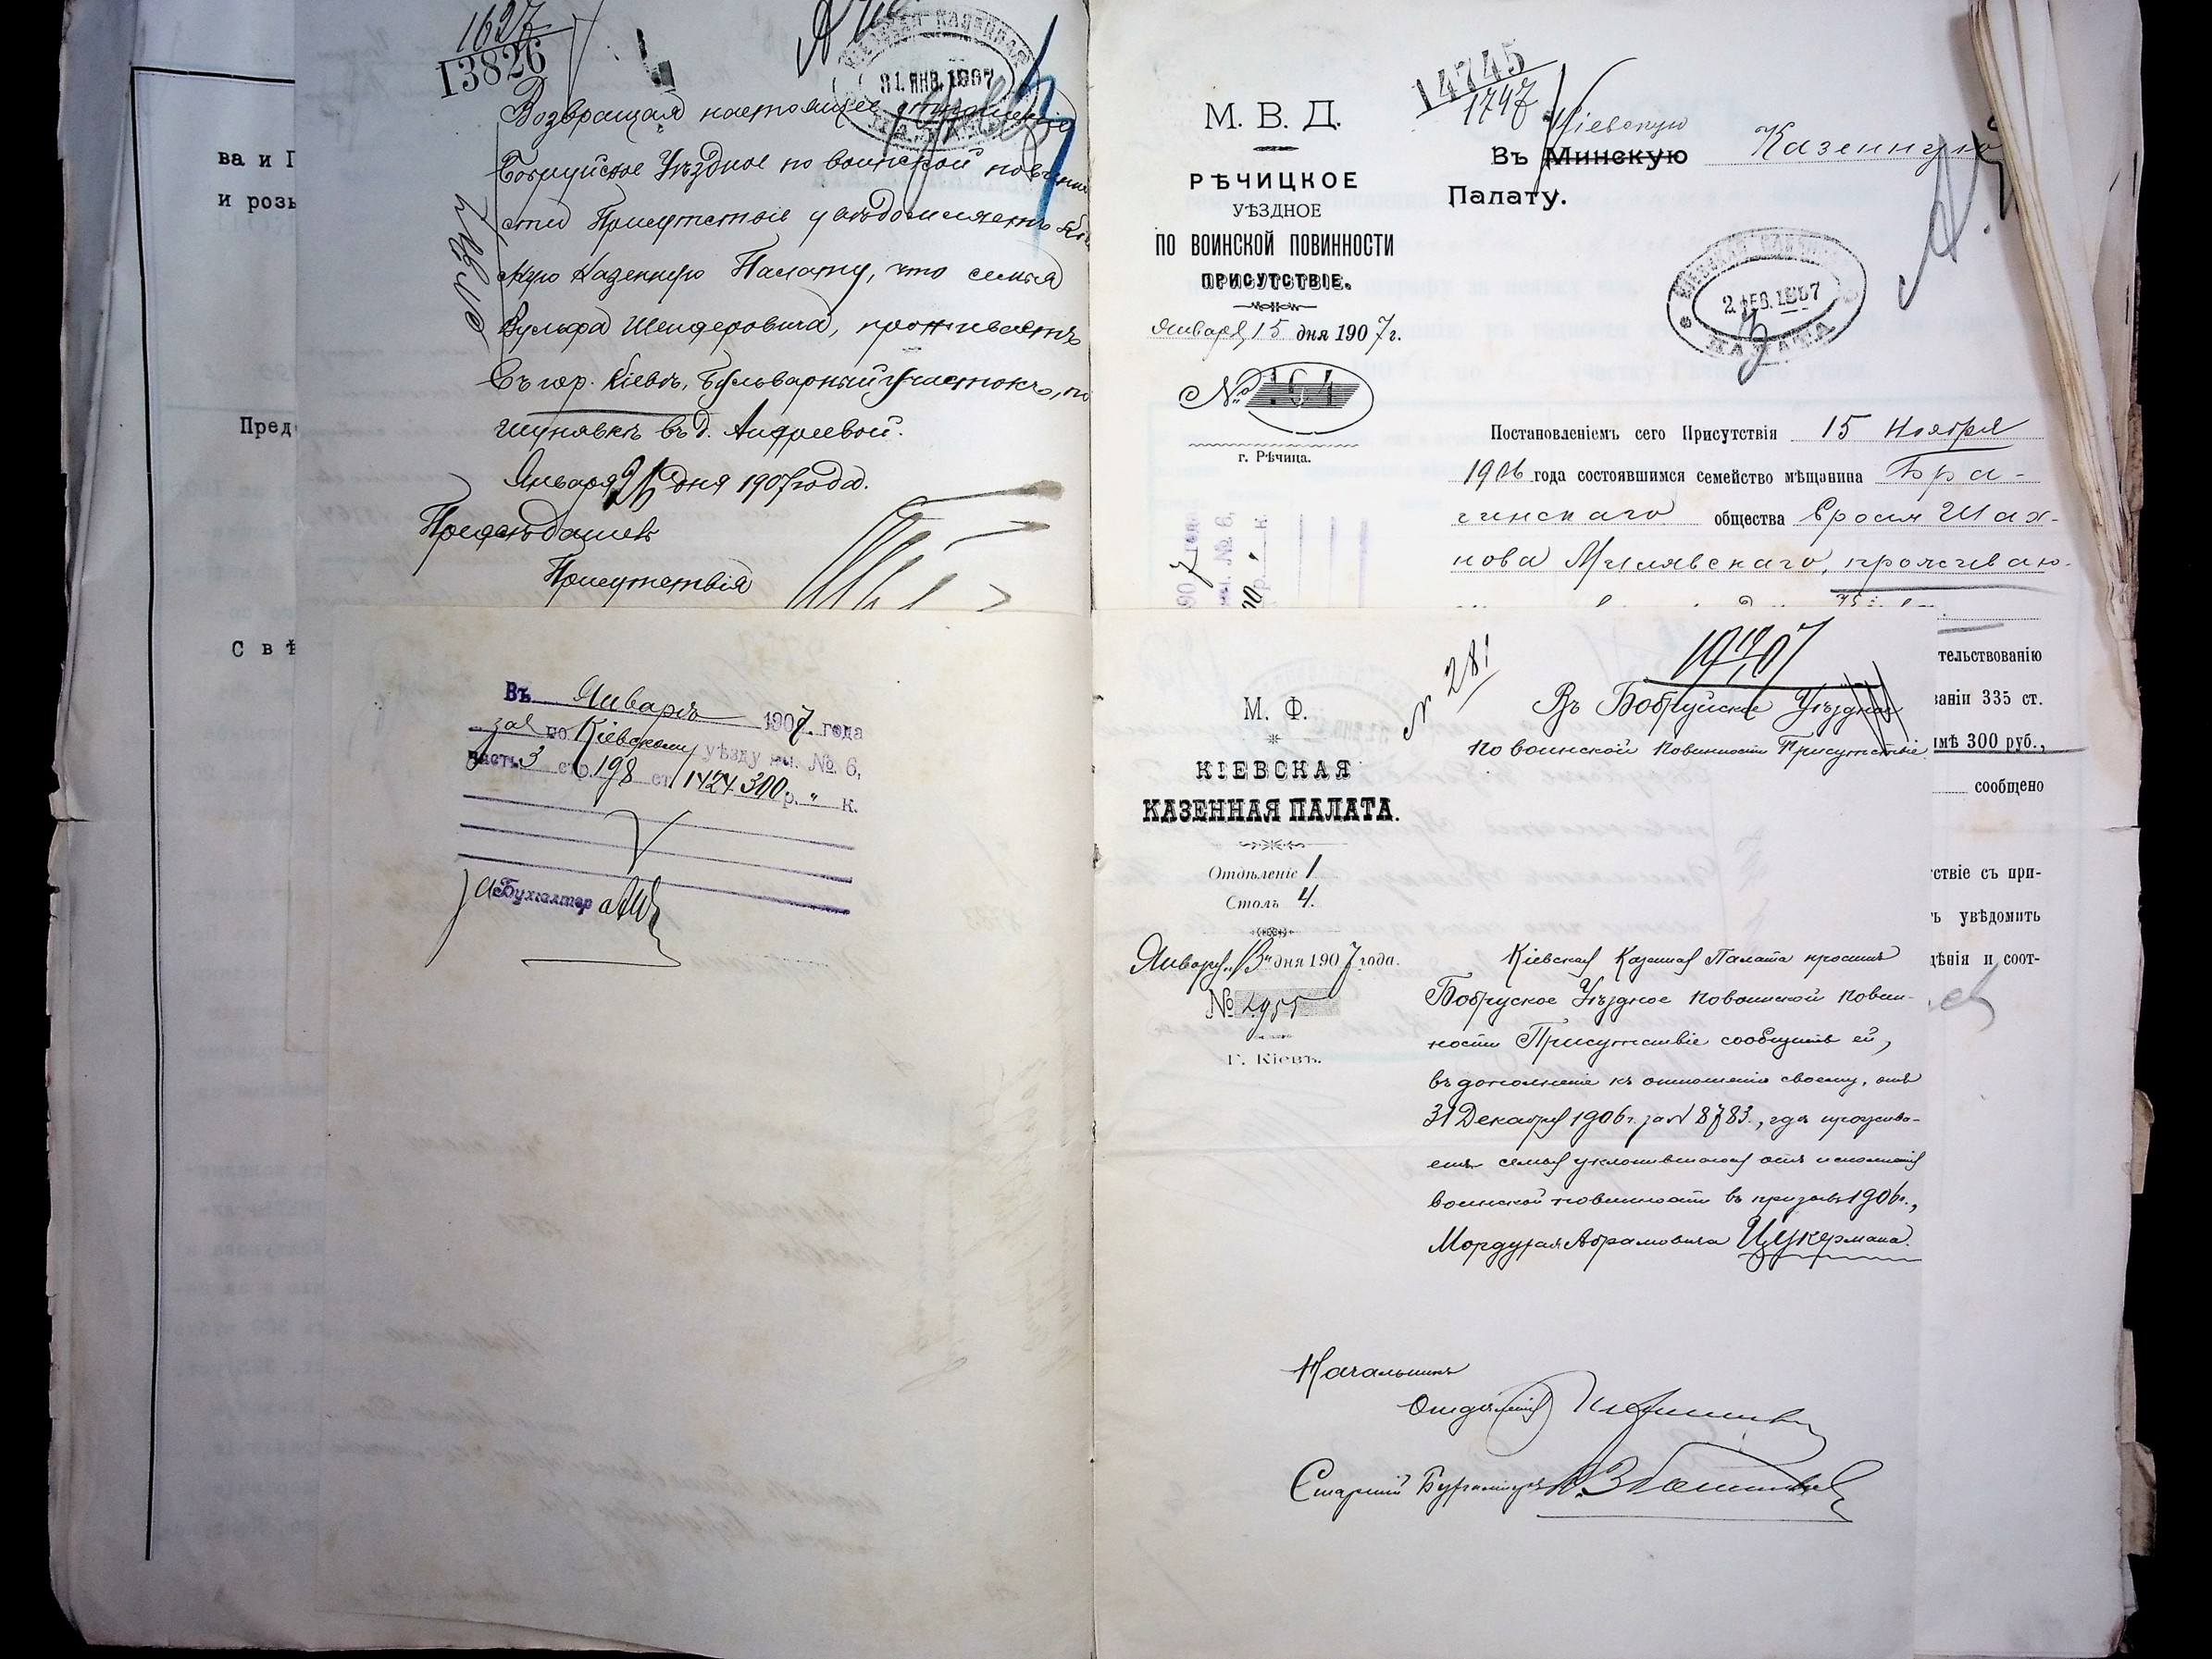 ва и Г
и розы
Пред
С в ѣ
1627
13826
31 ЯНВ. 1907
Возвращая настоящее отношеніе
Бобруйское Уѣздное по воинской повинно
сти Присутствіе увѣдомляетъ Кіе
скую Казенную Палату, что семья
Вульфа Шендеровича, проживаетъ
въ гор. Кіевѣ, Бульварный участокъ, по
Шулявкѣ въ д. Андреевой.
Января дня 1907 года.
Предсѣдатель
Присутствія
Въ Январѣ 1907 года
зач по Кіевскому уѣзду кн. № 6,
часть 3 стр. 198 ст. 1424 300 р. " к.
за Бухгалтер
14745
1747
М. В. Д.
РѢЧИЦКОЕ
УѢЗДНОЕ
ПО ВОИНСКОЙ ПОВИННОСТИ
ПРИСУТСТВІЕ.
Января 15 дня 1907 г.
№ 164
г. Рѣчица.
Кіевскую
Въ Минскую Казенную
Палату.
КАЗЕННАЯ
2 ФЕВ. 1907
ПАЛАТА
Постановленіемъ сего Присутствія 15 Ноября
1906 года состоявшимся семейство мѣщанина Бра-
гинскаго общества Ероим Шах-
нова Милявскаго, проживаю-
90 7 года
кн. № 6,
р. " к.
тельствованію
ваніи 335 ст.
имѣ 300 руб.,
сообщено
ствіе съ при-
ъ увѣдомить
дѣнія и соот-
№ 281
М. Ф.
КІЕВСКАЯ
КАЗЕННАЯ ПАЛАТА.
Отдѣленіе 1
Столъ 4.
Января „13" дня 1907 года.
№ 2955
Г. Кіевъ.
Въ Бобруйское Уѣздное
по воинской повинности Присутствіе
Кіевская Казенная Палата проситъ
Бобруское Уѣздное по воинской повин-
ности Присутствіе сообщить ей,
въ дополненіе къ отношенію своему, отъ
31 Декабря 1906 г. за № 8783, гдѣ прожива-
етъ семья уклонившагося отъ исполненія
воинской повинности въ призывъ 1906 г.,
Мордухая Абрамовича Цукермана.
Начальникъ
Отдѣленія
Старшій Бухгалтеръ